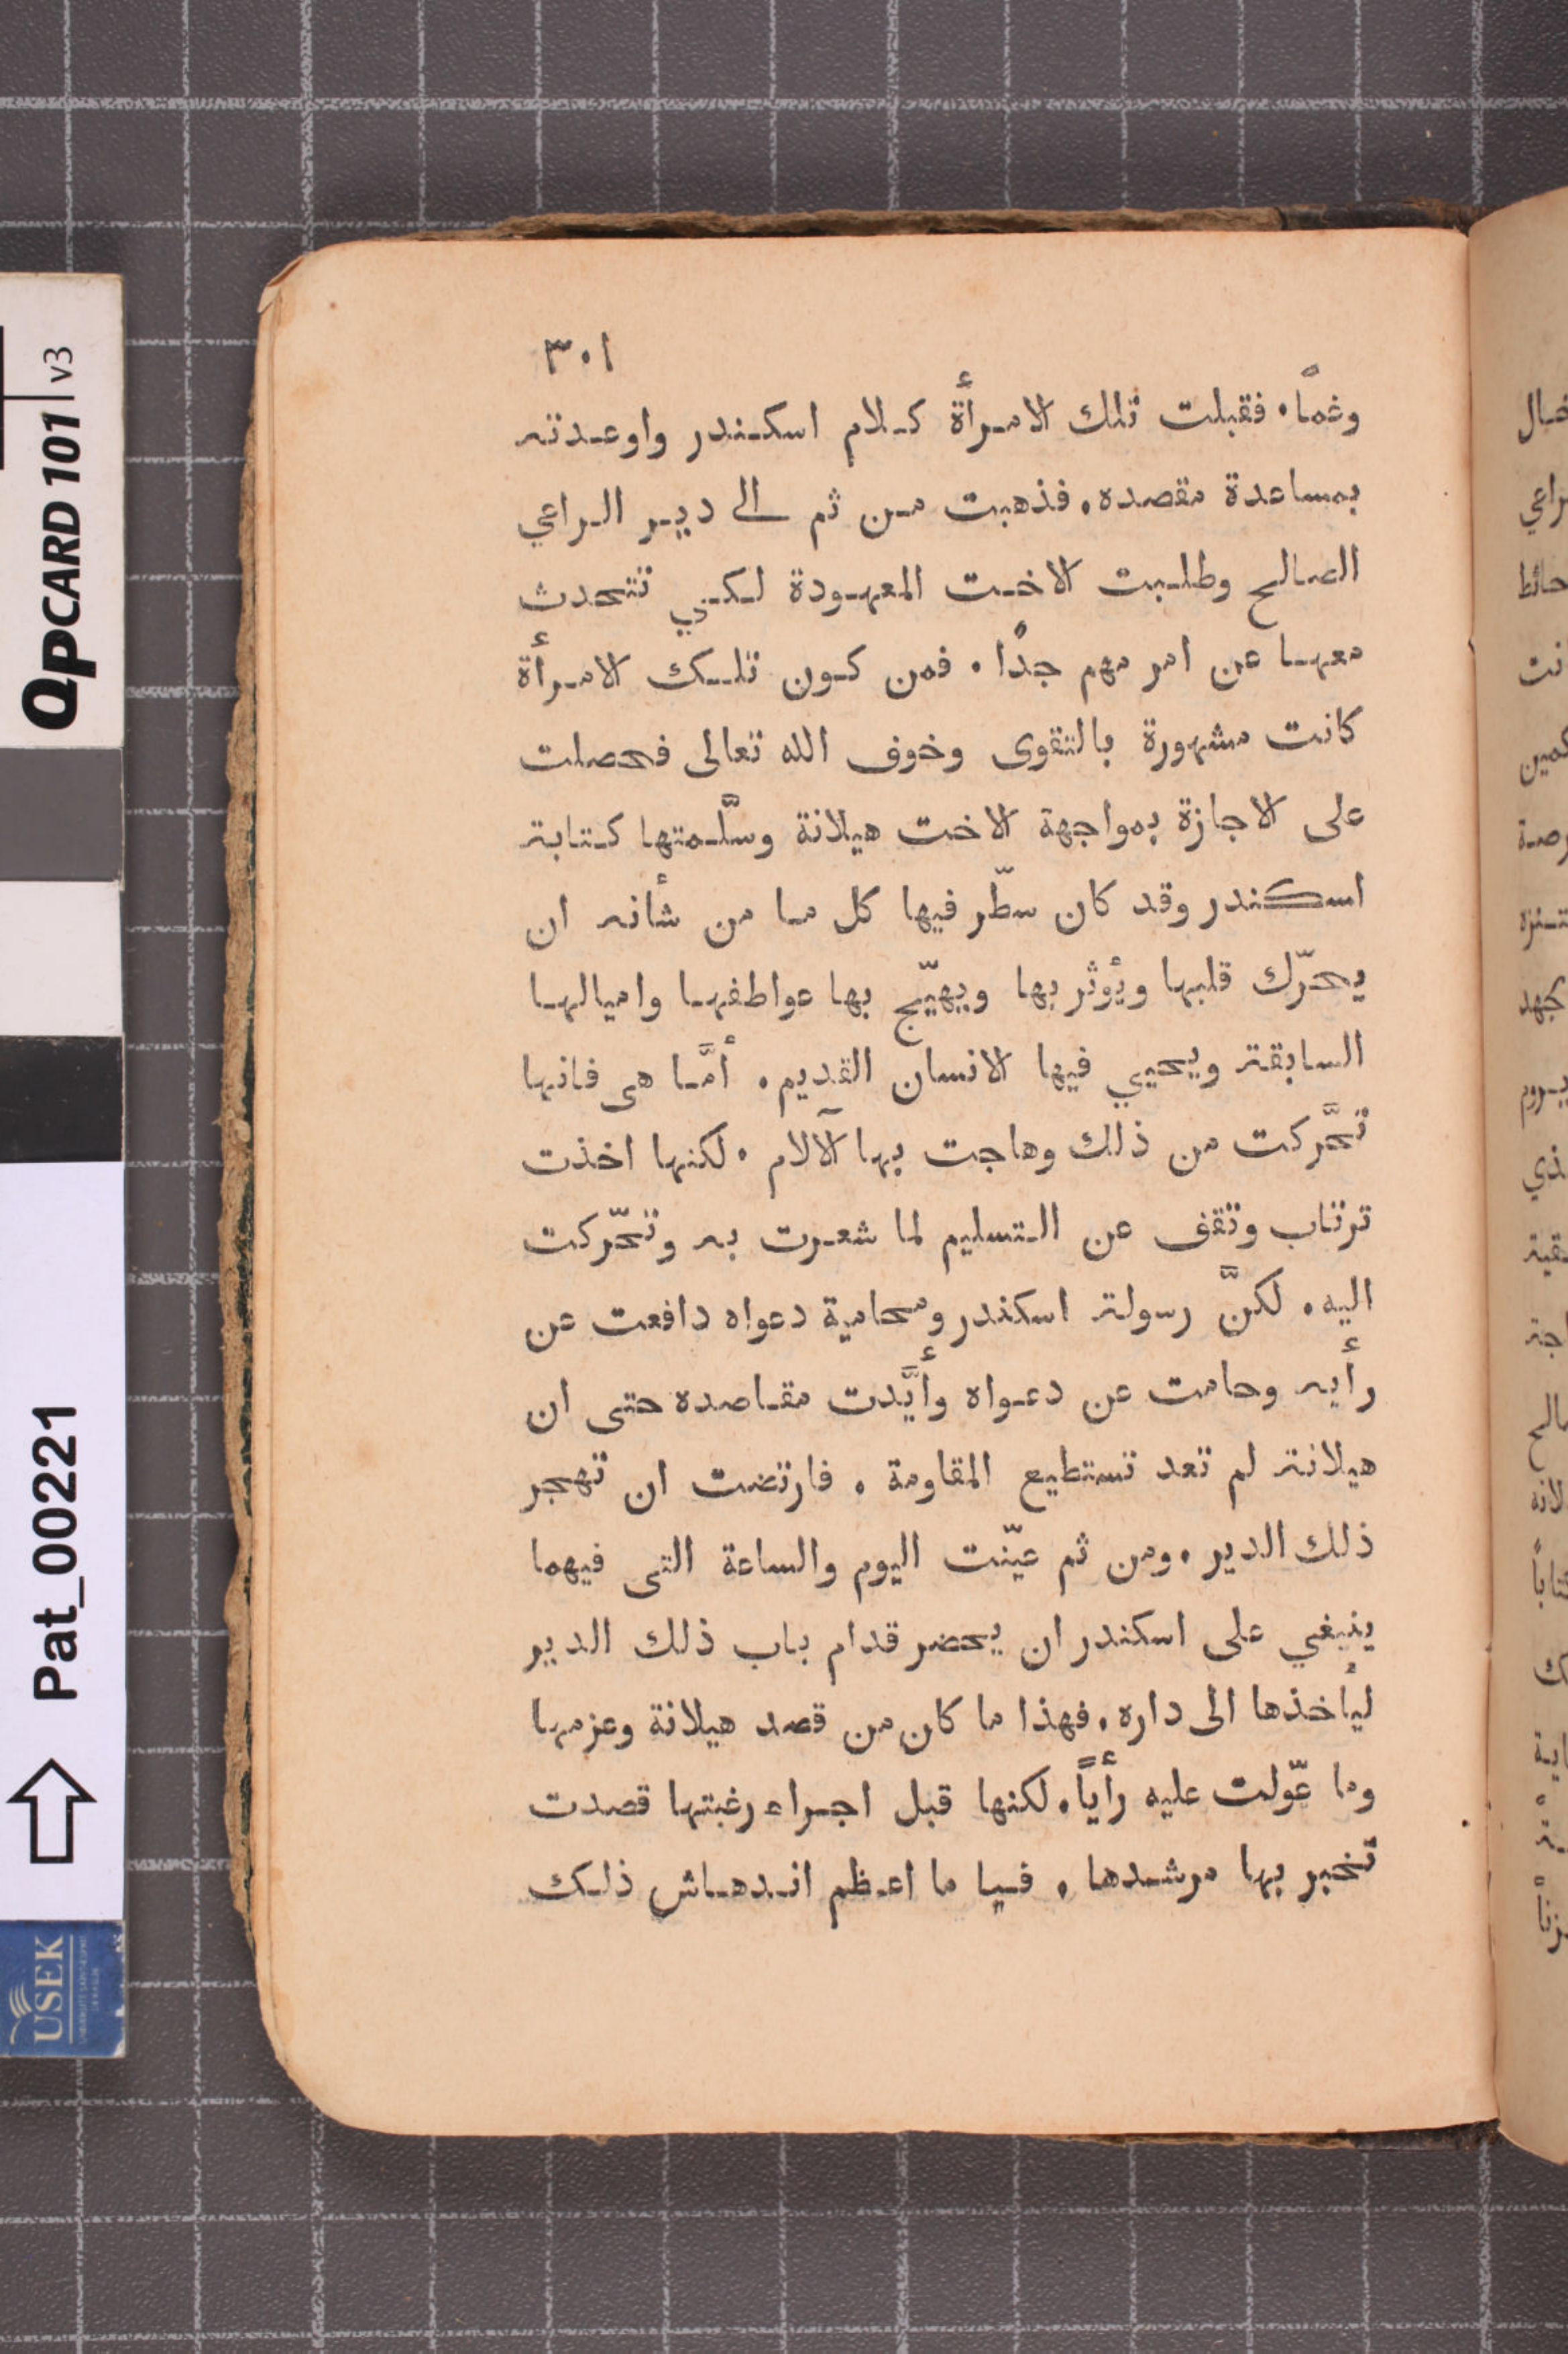 ٣٠١
وغمًا. فقبلت تلك الامرأة كلام اسكندر واوعدته
بمساعدة مقصده. فذهبت من ثم الى دير الراعي
الصالح وطلبت الاخت المعهودة لكي تتحدث
معها عن امر مهم جدًا. فمن كون تلك الامرأة
كانت مشهورة بالتقوى وخوف الله تعالى فحصلت
على الاجازة بمواجهة الاخت هيلانة وسلَّمتها كتابة
اسكندر وقد كان سطّر فيها كل ما من شأنه ان
يحرّك قلبها ويؤثر بها ويهيّج بها عواطفها واميالها
السابقة ويحيي فيها الانسان القديم. أمَّا هى فانها
تحَّركت من ذلك وهاجت بها آلالام. لكنها اخذت
ترتاب وتقف عن التسليم لما شعرت به وتحّركت
اليه. لكنَّ رسولة اسكندر ومحامية دعواه دافعت عن
رأيه وحامت عن دعواه وأيَّدت مقاصده حتى ان
هيلانة لم تعد تستطيع المقاومة. فارتضت ان تهجر
ذلك الدير. ومن ثم عيّنت اليوم والساعة التى فيهما
ينبغي على اسكندر ان يحضر قدام باب ذلك الدير
ليأخذها الى داره. فهذا ما كان من قصد هيلانة وعزمها
وما عّولت عليه رأياً. لكنها قبل اجراء رغبتها قصدت
تخبر بها مرشدها. فيا ما اعظم اندهاش ذلك
QPCARD 101 v3
Pat_00221
USEK